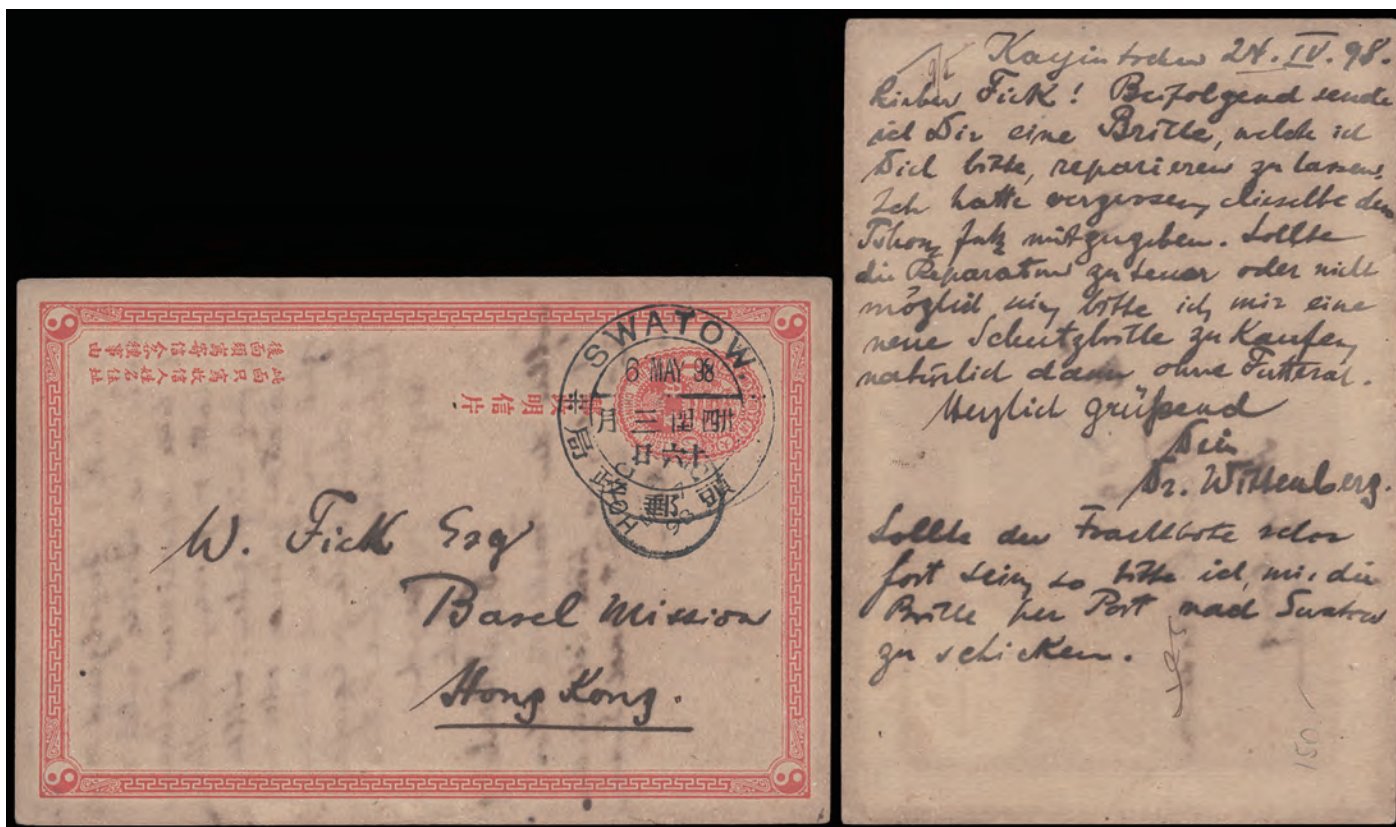 SWATOW
6 MAY 98
月 三
W. Fick Esq
Basel Mission
Hong Kong.
24. IV. 98.
Lieber Fick! Beifolgend sende
ich Dir eine Brille, welche ich
Dich bitte, reparieren zu lassen.
Ich hatte vergessen, dieselbe dem
mitzugeben. Sollte
die Reparatur zu teuer oder nicht
möglich sein, bitte ich, mir eine
neue Schutzbrille zu kaufen,
natürlich dann ohne Futteral.
Herzlich grüßend
Dein
Dr. Wittenberg.
Sollte der Frachtbote schon
fort sein, so bitte ich, mir die
Brille per Post nach Swatow
zu schicken.
150.-